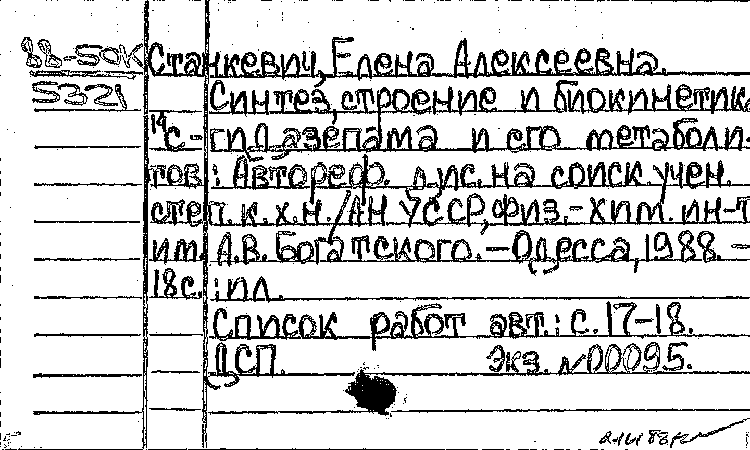 88-50K Станкевич, Елена Алексеевна.
5321 Синтез, строение и биокинетика
¹⁴С-гидазепама и его метаболи-
тов: Автореф. дис. на соиск. учен.
степ. к. х. н. / АН УССР, Физ.-хим. ин-т
им. А.В. Богатского. – Одесса, 1988. –
18с. : ил.
Список работ авт.: с. 17-18.
ДСП. Экз. №00095.